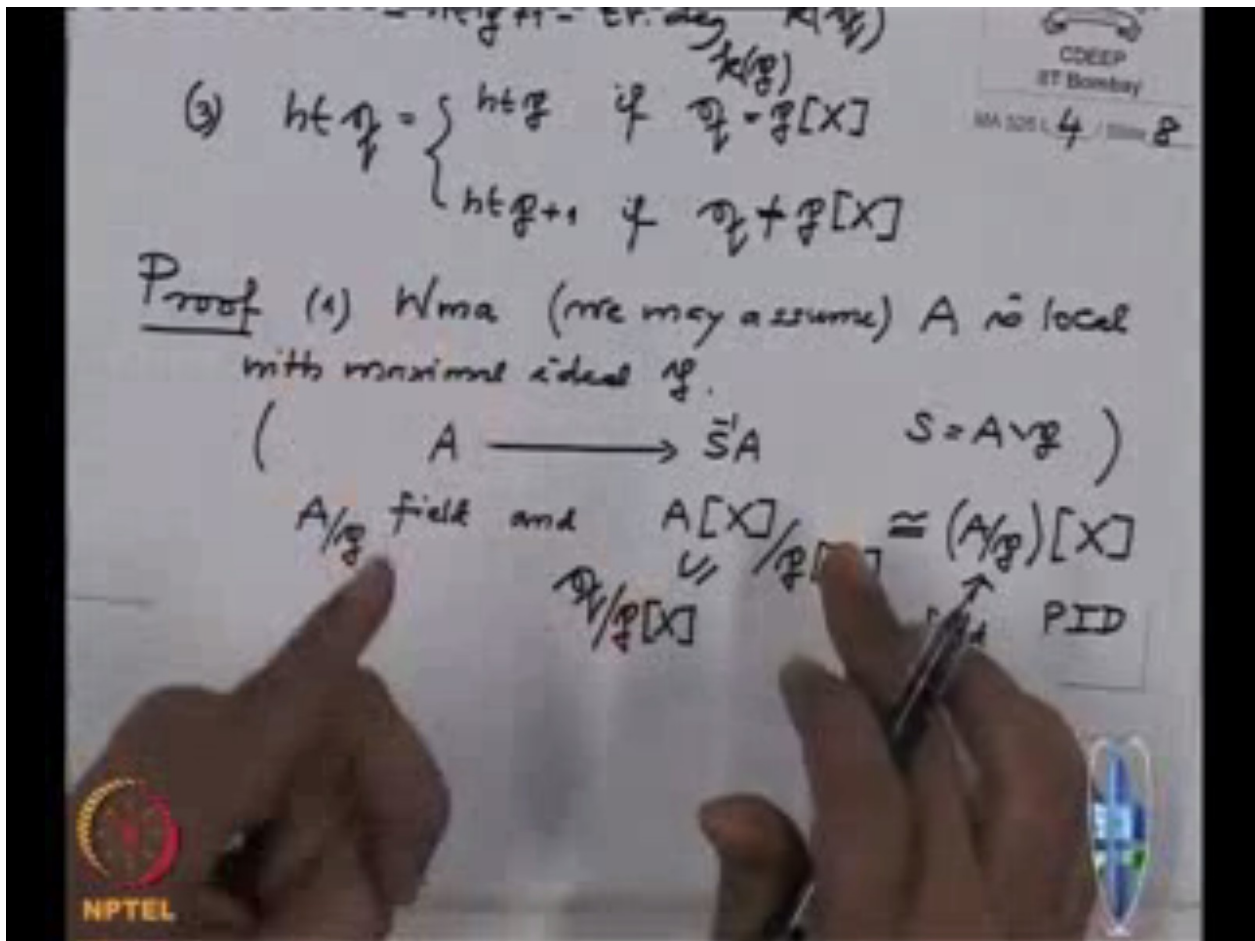 = ht 𝔭 + 1 - tr.deg k(𝔮)
k(𝔭)
CDEEP
IIT Bombay
MA 526 L 4 / Slide 8
(3) ht 𝔮 = { ht 𝔭 if 𝔮 = 𝔭[X]
ht 𝔭+1 if 𝔮 ≠ 𝔭[X]
Proof (1) Wma (we may assume) A is local
with maximal ideal 𝔭.
( A ⟶ S⁻¹A S = A∖𝔭 )
A/𝔭 field and A[X]/𝔭[ ] ≅ (A/𝔭)[X]
𝔮/𝔭[X] PID
NPTEL